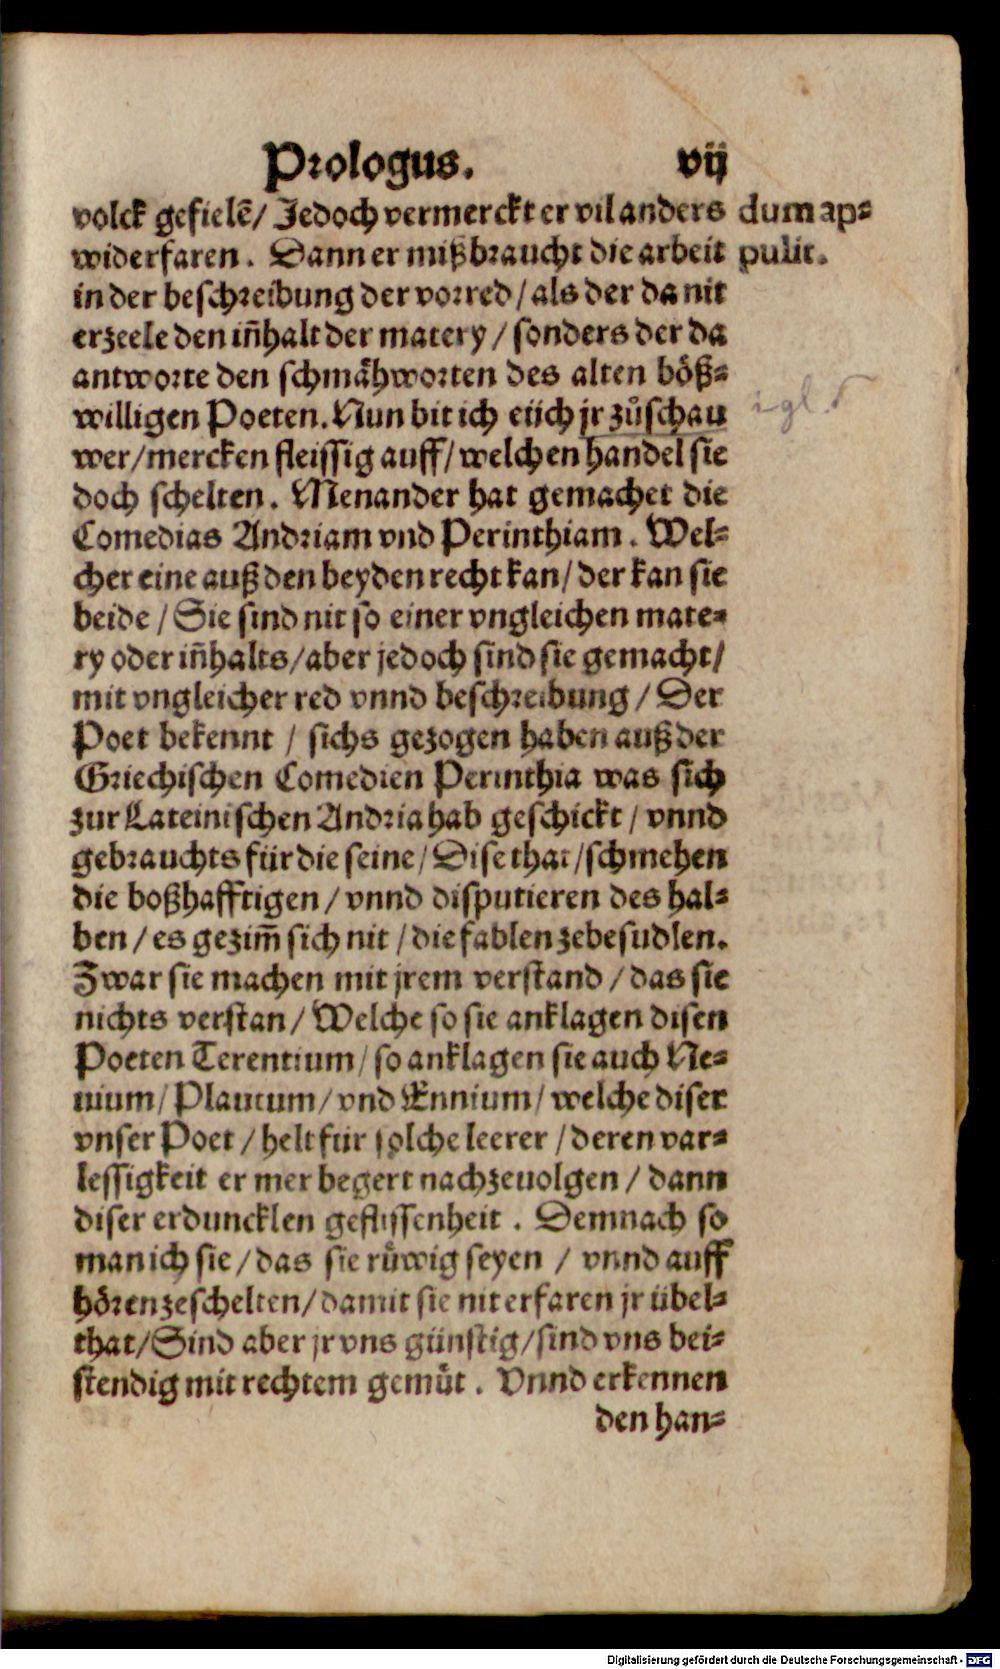 Prologus. vij
volck gefielē/ Jedoch vermerckt er vil anders dum ap⸗
widerfaren. Dann er mißbraucht die arbeit pulit.
in der beschreibung der vorred/ als der da nit
erzeele den iñhalt der matery/ sonders der da
antworte den schmåhworten des alten böß⸗
willigen Poeten. Nun bit ich eüch jr zůschau
wer/mercken fleissig auff/ welchen handel sie
doch schelten. Menander hat gemachet die
Comedias Andriam vnd Perinthiam. Wel⸗
cher eine auß den beyden recht kan/ der kan sie
beide/ Sie sind nit so einer vngleichen mate⸗
ry oder iñhalts/aber jedoch sind sie gemacht/
mit vngleicher red vnnd beschreibung/ Der
Poet bekennt / sichs gezogen haben auß der
Griechischen Comedien Perinthia was sich
zur Lateinischen Andria hab geschickt/ vnnd
gebrauchts für die seine/ Dise that/schmehen
die boßhafftigen/ vnnd disputieren des hal⸗
ben/ es gezim̃ sich nit/ die fablen zebesudlen.
Zwar sie machen mit jrem verstand/ das sie
nichts verstan/ Welche so sie anklagen disen
Poeten Terentium/ so anklagen sie auch Ne⸗
uium/ Plautum/ vnd Ennium/ welche diser
vnser Poet/ helt für solche leerer/ deren var⸗
lessigkeit er mer begert nachzeuolgen/ dann
diser erduncklen geflissenheit. Demnach so
man ich sie/ das sie růwig seyen / vnnd auff
hören zeschelten/ damit sie nit erfaren jr übel⸗
that/ Sind aber jr vns günstig/sind vns bei⸗
stendig mit rechtem gemůt. Vnnd erkennen
den han⸗
Digitalisierung gefördert durch die Deutsche Forschungsgemeinschaft - DFG